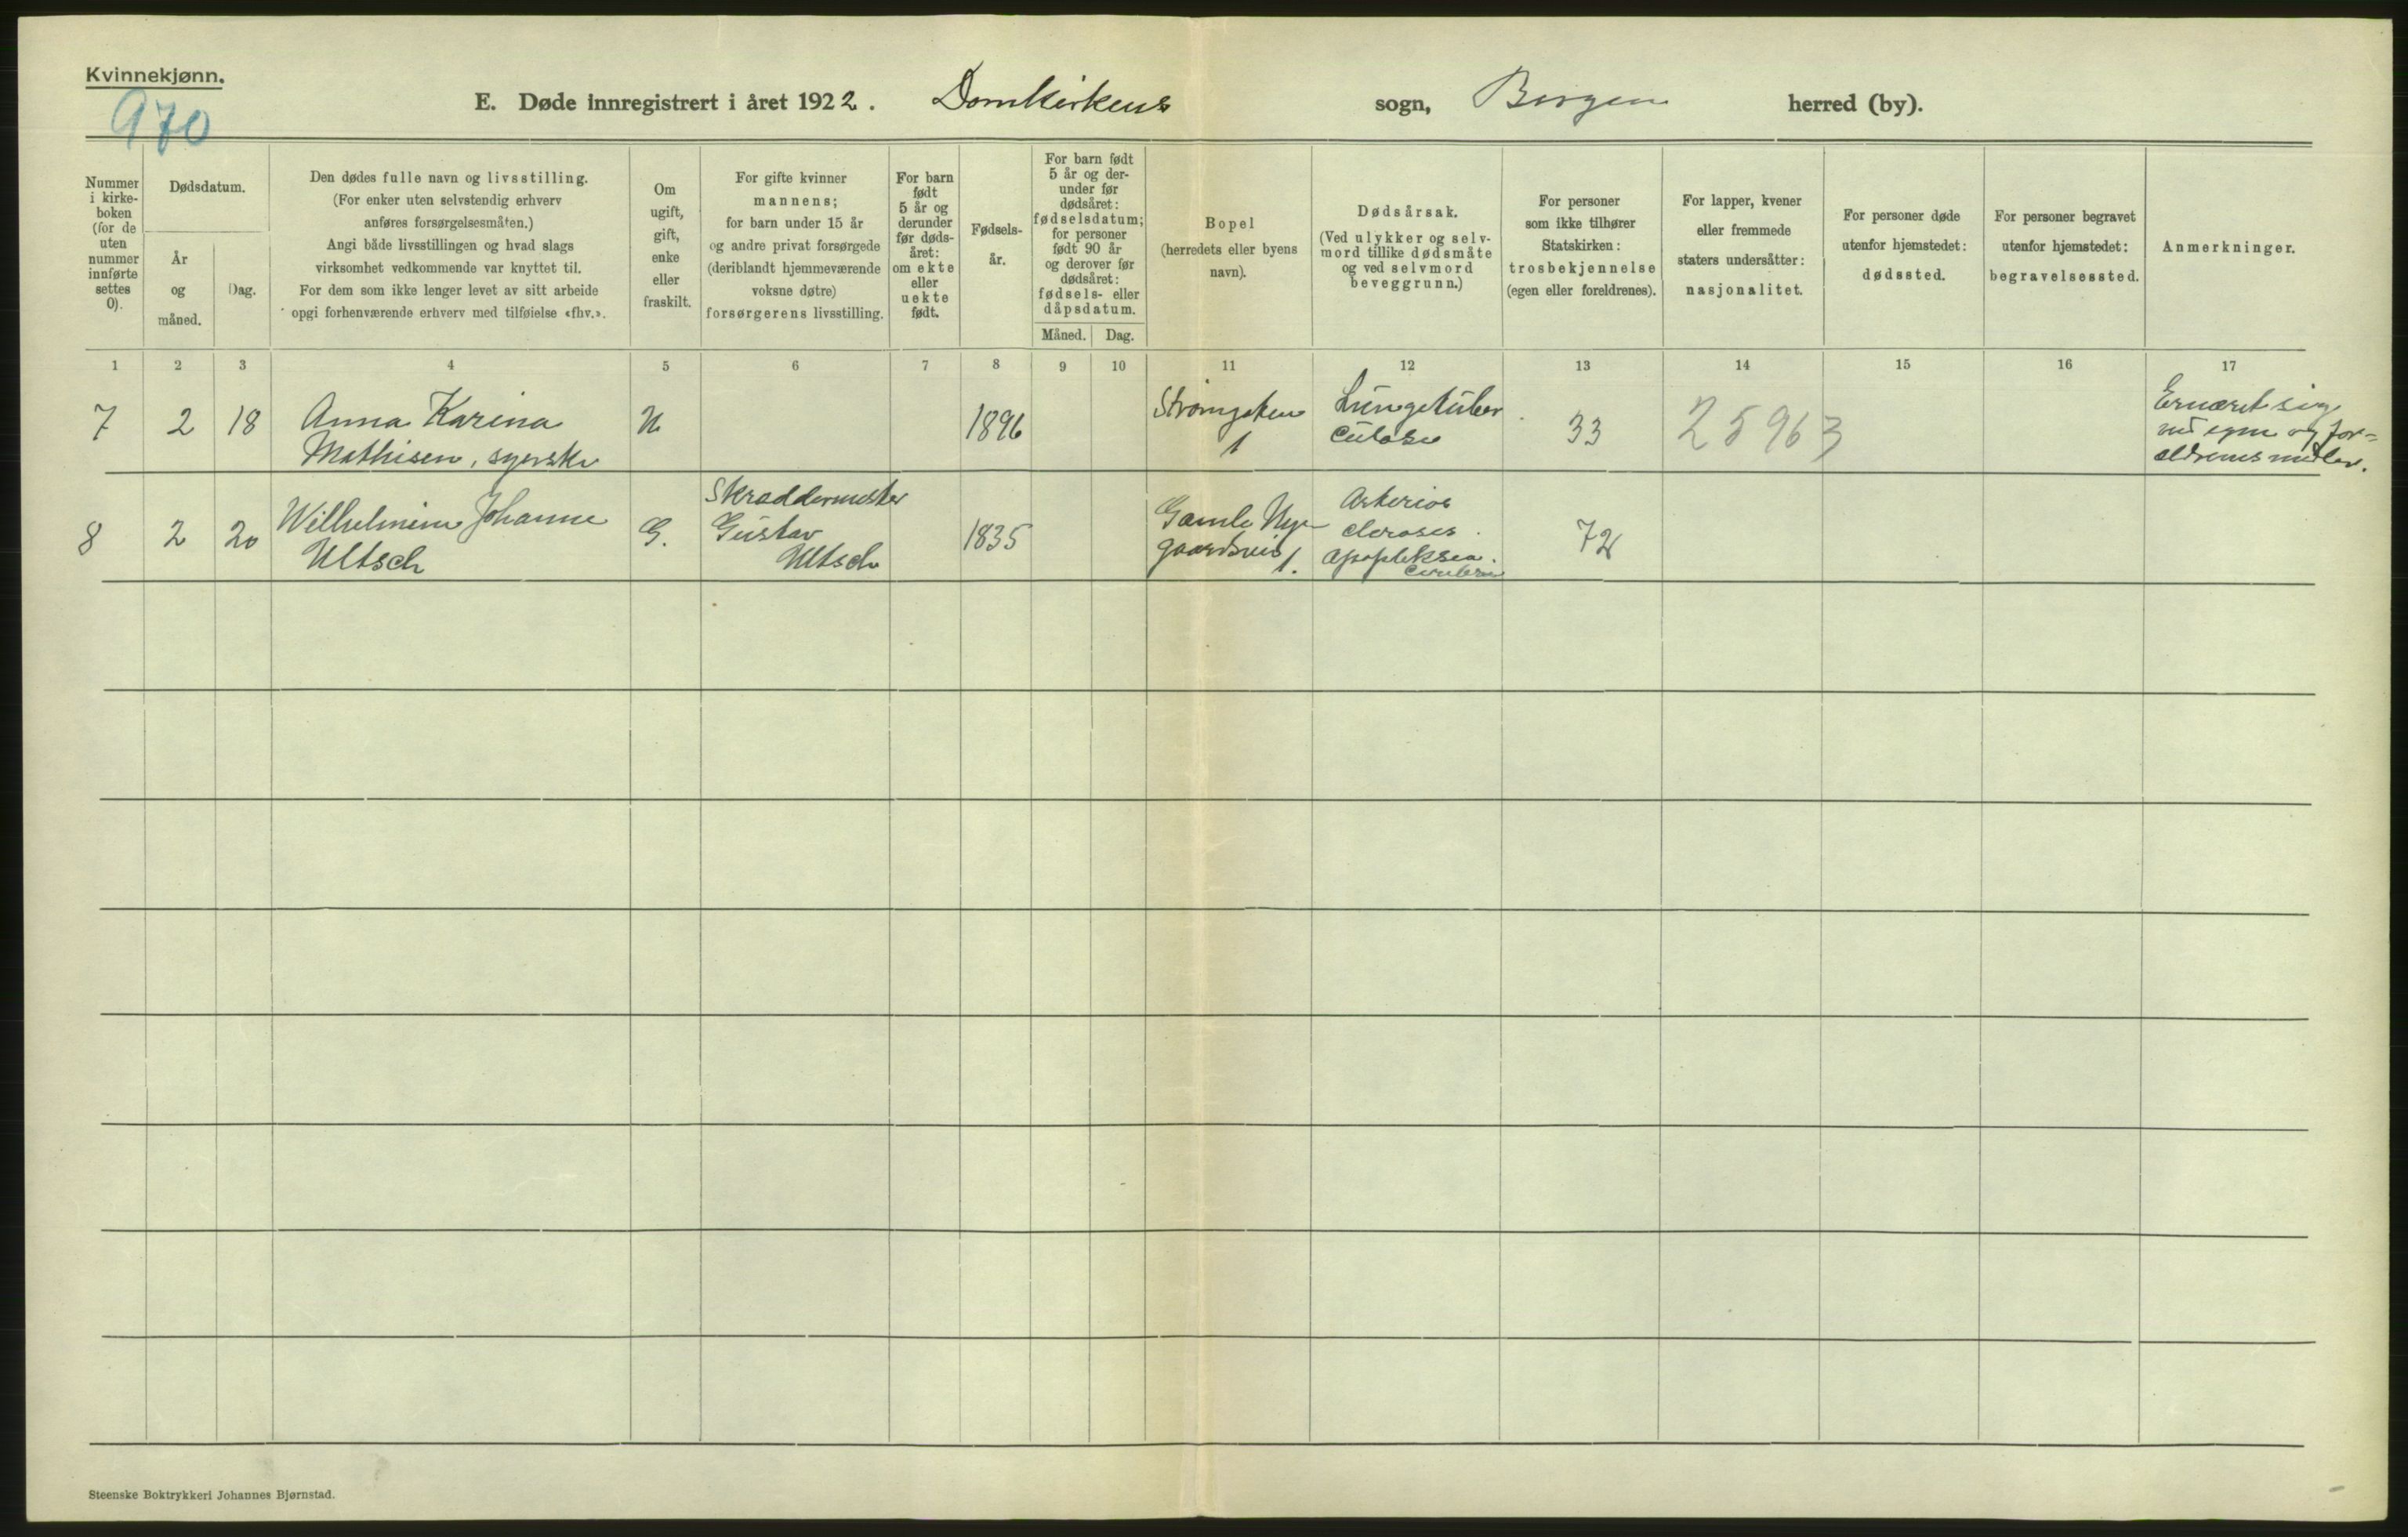 Kvinnekjønn.
970
E. Døde innregistrert i året 1922. Domkirkens sogn, Bergen herred (by).
Nummer
i kirke-
boken
(for de
uten
nummer
innførte
settes
0).
Dødsdatum.
År
og
måned.
Dag.
Den dødes fulle navn og livsstilling.
(For enker uten selvstendig erhverv
anføres forsørgelsesmåten.)
Angi både livsstillingen og hvad slags
virksomhet vedkommende var knyttet til.
For dem som ikke lenger levet av sitt arbeide
opgi forhenværende erhverv med tilføielse «fhv.».
Om
ugift,
gift,
enke
eller
fraskilt.
For gifte kvinner
mannens;
for barn under 15 år
og andre privat forsørgede
(deriblandt hjemmeværende
voksne døtre)
forsørgerens livsstilling.
For barn
født
5 år og
derunder
før døds-
året:
om ekte
eller
uekte
født.
Fødsels-
år.
For barn født
5 år og der-
under før
dødsåret:
fødselsdatum;
for personer
født 90 år
og derover før
dødsåret:
fødsels- eller
dåpsdatum.
Måned. Dag.
Bopel
(herredets eller byens
navn).
Dødsårsak.
(Ved ulykker og selv-
mord tillike dødsmåte
og ved selvmord
beveggrunn.)
For personer
som ikke tilhører
Statskirken:
trosbekjennelse
(egen eller foreldrenes).
For lapper, kvener
eller fremmede
staters undersåtter:
nasjonalitet.
For personer døde
utenfor hjemstedet:
dødssted.
For personer begravet
utenfor hjemstedet:
begravelsessted.
Anmerkninger.
1 2 3 4 5 6 7 8 9 10 11 12 13 14 15 16 17
7 2 18 Anna Karina
Mathisen, syerske
U
1896
Strømgaten
1
Lungetuber
culose
33
25963
Ernæret sig
ved egne og for-
ældrenes midler.
8 2 20 Wilhelmine Johanne
Ultsch
G.
Skraddermester
Gustav
Ultsch
1835
Gamle Nye
gaardsvei
1.
Arterios
cleroses
apopleksia
cerebri
72
Steenske Boktrykkeri Johannes Bjørnstad.